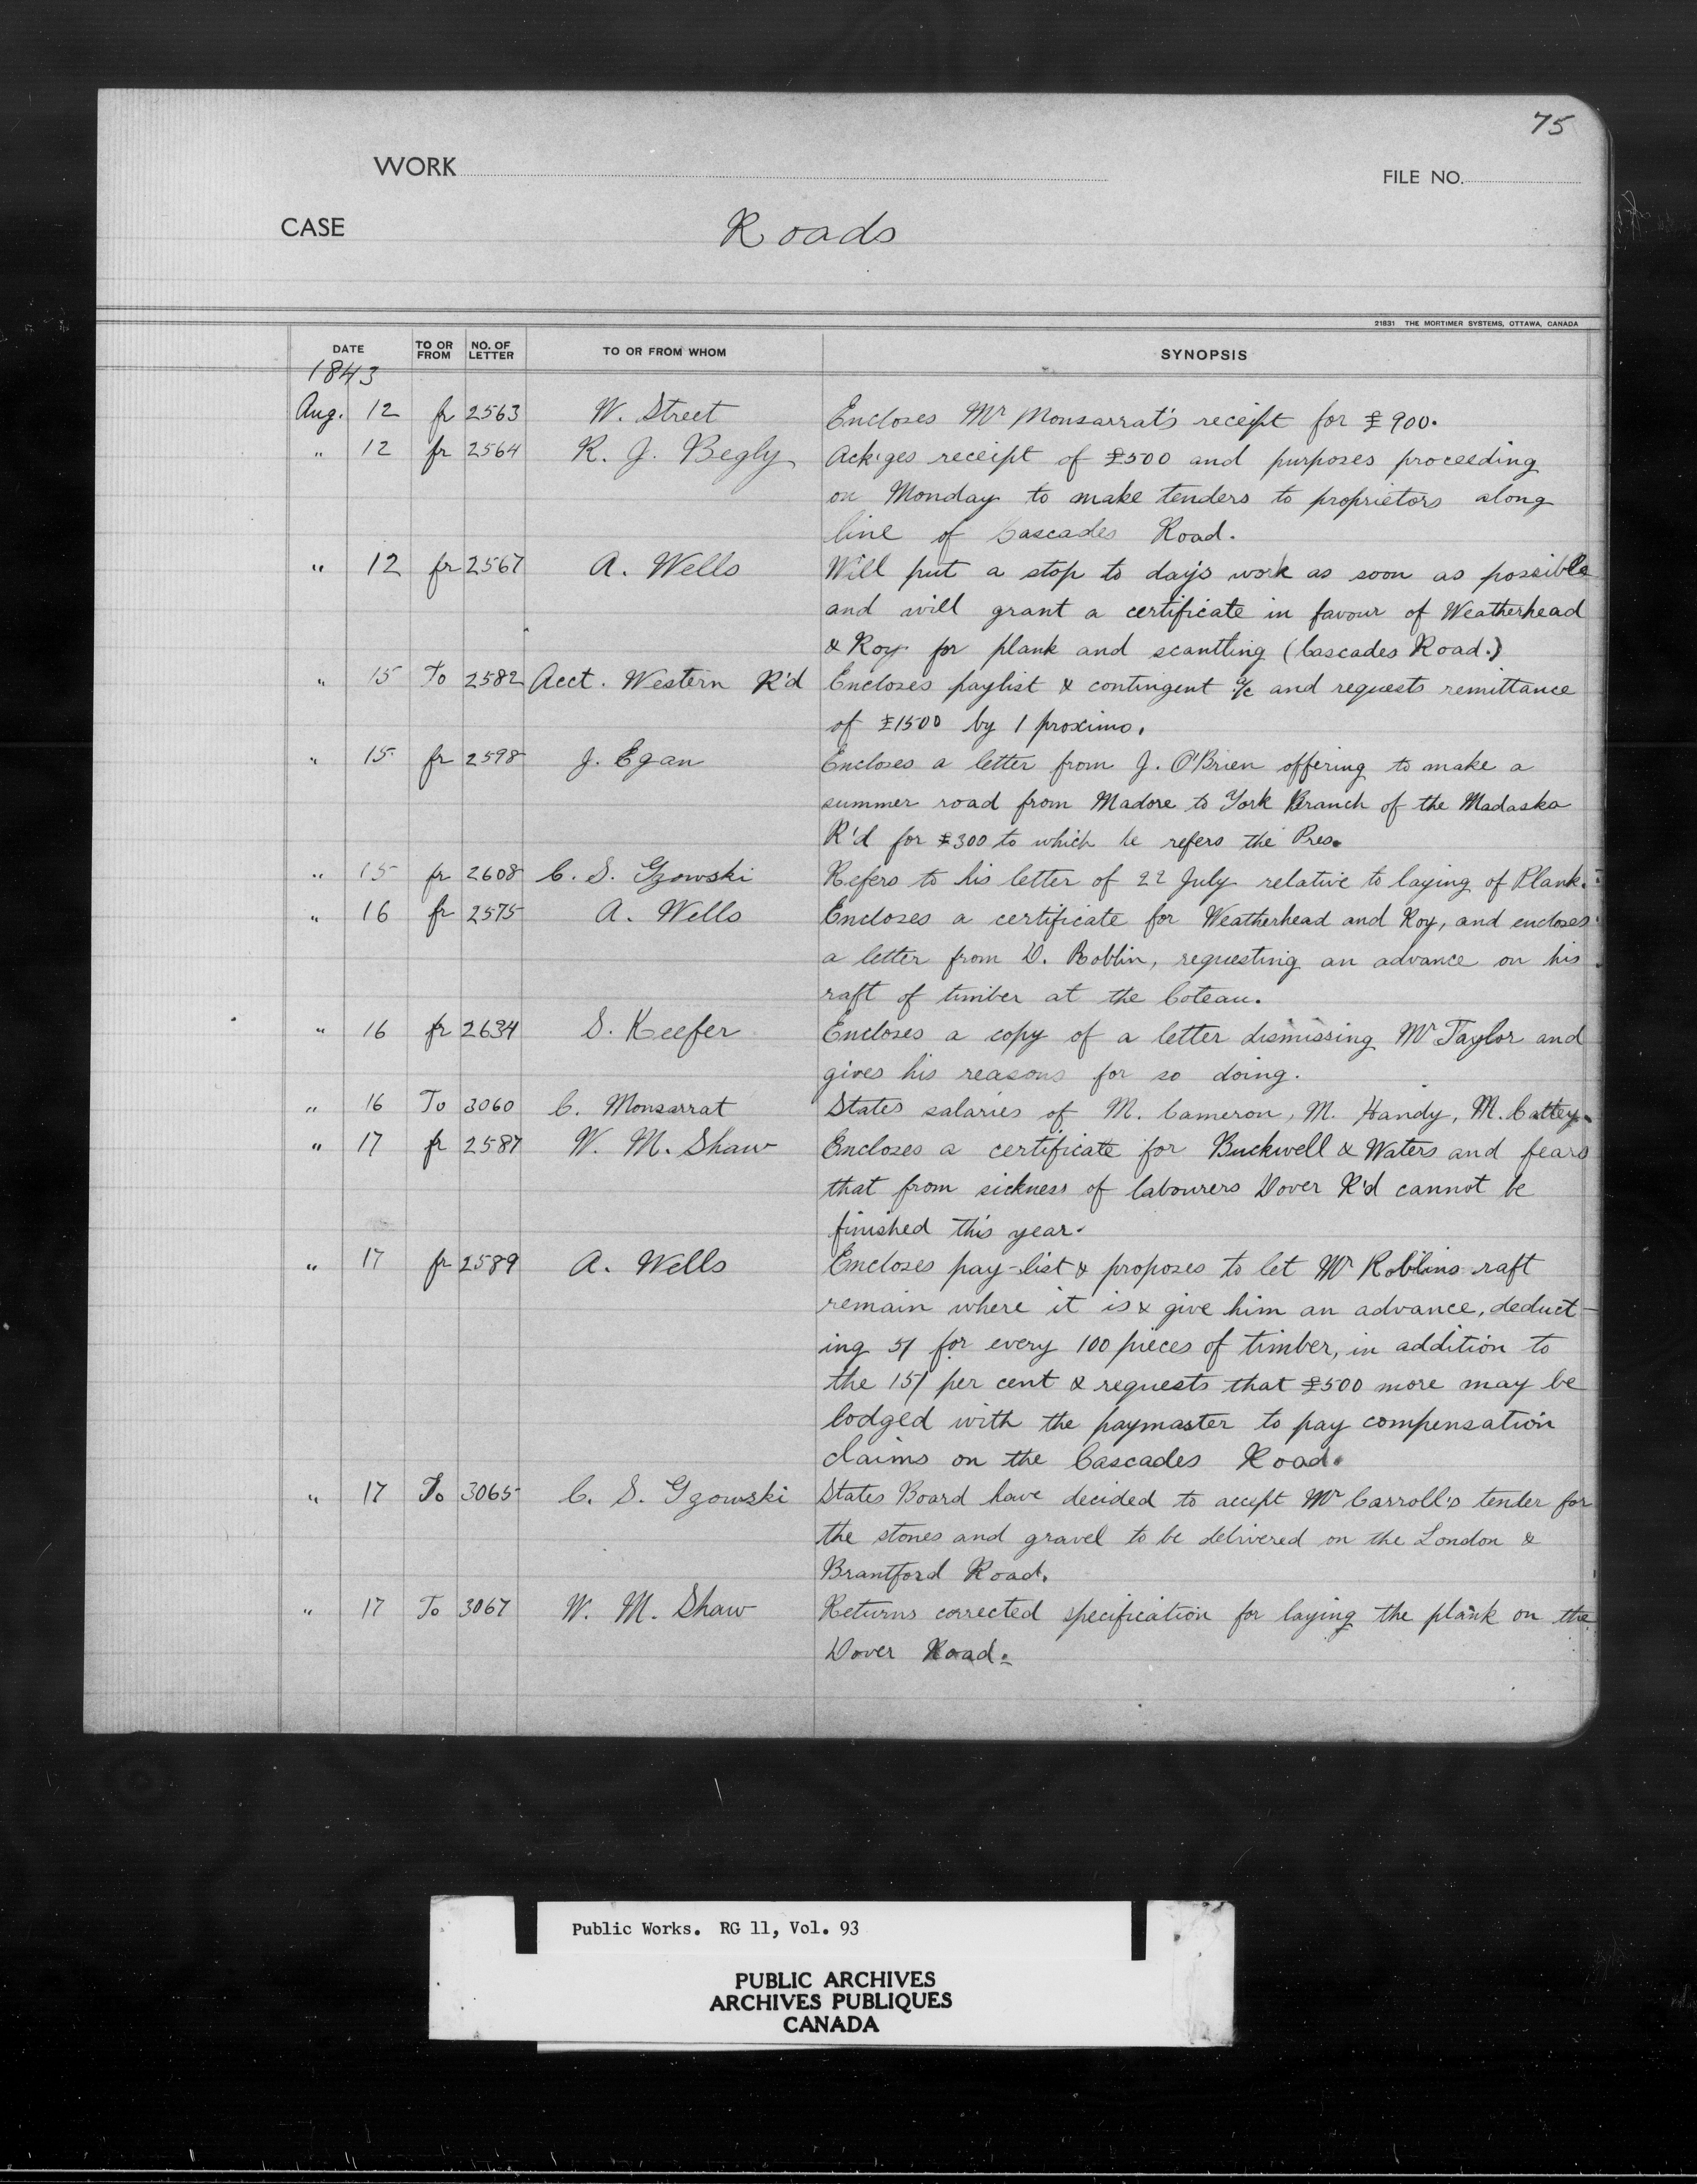 75
WORK
FILE NO.
CASE
Roads
21831 THE MORTIMER SYSTEMS, OTTAWA, CANADA
DATE TO OR FROM NO. OF LETTER TO OR FROM WHOM SYNOPSIS
1843
Aug. 12 fr 2563 W. Street Encloses Mr Monsarrat's receipt for £900.
" 12 fr 2564 R. J. Begly Ack'ges receipt of £500 and purposes proceeding
on Monday to make tenders to proprietors along
line of Cascades Road.
" 12 fr 2567 A. Wells Will put a stop to day's work as soon as possible
and will grant a certificate in favour of Weatherhead
& Roy for plank and scantling (Cascades Road.)
" 15 To 2582 Acct. Western R'd Encloses paylist & contingent a/c and requests remittance
of £1500 by 1 proximo.
" 15 fr 2598 J. Egan Encloses a letter from J. O'Brien offering to make a
summer road from Madore to York Branch of the Madaska
R'd for £300 to which he refers the Pres.
" 15 fr 2608 C. S. Gzowski Refers to his letter of 22 July relative to laying of Plank.
" 16 fr 2575 A. Wells Encloses a certificate for Weatherhead and Roy, and encloses
a letter from D. Roblin, requesting an advance on his
raft of timber at the Coteau.
" 16 fr 2634 S. Keefer Encloses a copy of a letter dismissing Mr Taylor and
gives his reasons for so doing.
" 16 To 3060 C. Monsarrat States salaries of M. Cameron, M. Handy, M. Cattey.
" 17 fr 2587 W. M. Shaw Encloses a certificate for Buckwell & Waters and fears
that from sickness of labourers Dover R'd cannot be
finished this year.
" 17 fr 2589 A. Wells Encloses pay-list & proposes to let Mr Roblins raft
remain where it is & give him an advance, deduct-
ing 5/ for every 100 pieces of timber, in addition to
the 15/ per cent & requests that £500 more may be
lodged with the paymaster to pay compensation
claims on the Cascades Road.
" 17 To 3065 C. S. Gzowski States Board have decided to accept Mr Carroll's tender for
the stones and gravel to be delivered on the London &
Brantford Road.
" 17 To 3067 W. M. Shaw Returns corrected specification for laying the plank on the
Dover Road.
Public Works. RG 11, Vol. 93
PUBLIC ARCHIVES
ARCHIVES PUBLIQUES
CANADA